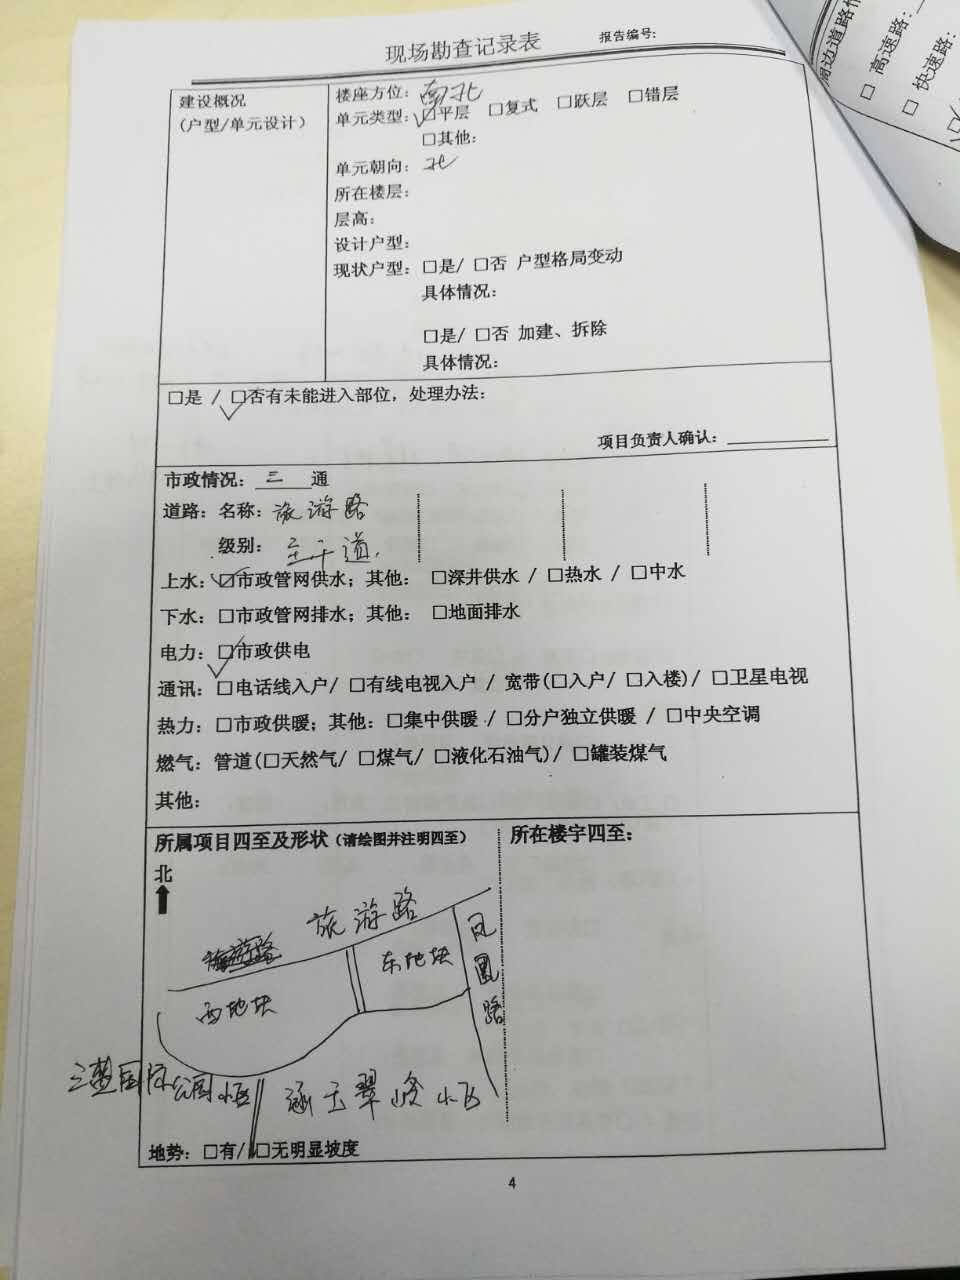 现场勘查记录表 报告编号:
建设概况
(户型/单元设计)
楼座方位: 南北
单元类型: ☑平层 □复式 □跃层 □错层
□其他:
单元朝向: 北
所在楼层:
层高:
设计户型:
现状户型: □是/ □否 户型格局变动
具体情况:
□是/ □否 加建、拆除
具体情况:
□是 / ☑否有未能进入部位，处理办法:
项目负责人确认:
市政情况: 三 通
道路: 名称: 旅游路
级别: 主干道
上水: ☑市政管网供水; 其他: □深井供水 / □热水 / □中水
下水: □市政管网排水; 其他: □地面排水
电力: ☑市政供电
通讯: □电话线入户/ □有线电视入户 / 宽带(□入户/ □入楼)/ □卫星电视
热力: □市政供暖; 其他: □集中供暖 / □分户独立供暖 / □中央空调
燃气: 管道(□天然气/ □煤气/ □液化石油气)/ □罐装煤气
其他:
所属项目四至及形状 (请绘图并注明四至)
所在楼宇四至:
北
旅游路
东地块
凤凰路
西地块
国际公园小区
涵玉翠岭小区
地势: □有/ □无明显坡度
4
周边道路
□ 高速路:
□ 快速路: